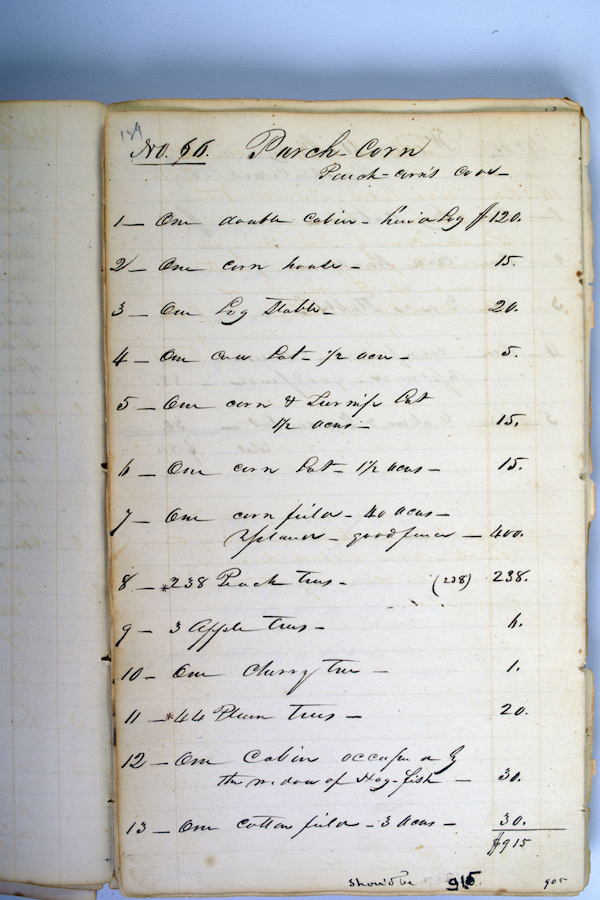 No. 66. Parch-Corn
Parch-corn's cove-
1 - One double cabin - hewd Log $120.
2 - One corn house - 15.
3 - One Log Stable - 20.
4 - One cow Lot - 1/2 acre - 5.
5 - One corn & Turnip Lot
1 1/2 acres - 15.
6 - One corn Lot - 1 1/2 acres - 15.
7 - One corn field - 40 acres -
upland - good fence - 400.
8 - *238 Peach trees - (238) 238.
9 - 3 Apple trees - 6.
10 - One Cherry tree - 1.
11 - *44 Plum trees - 20.
12 - One Cabin occupied by
the widow of Hog-fish - 30.
13 - One cotton field - 3 acres - 30.
$915
Should be 915.
905